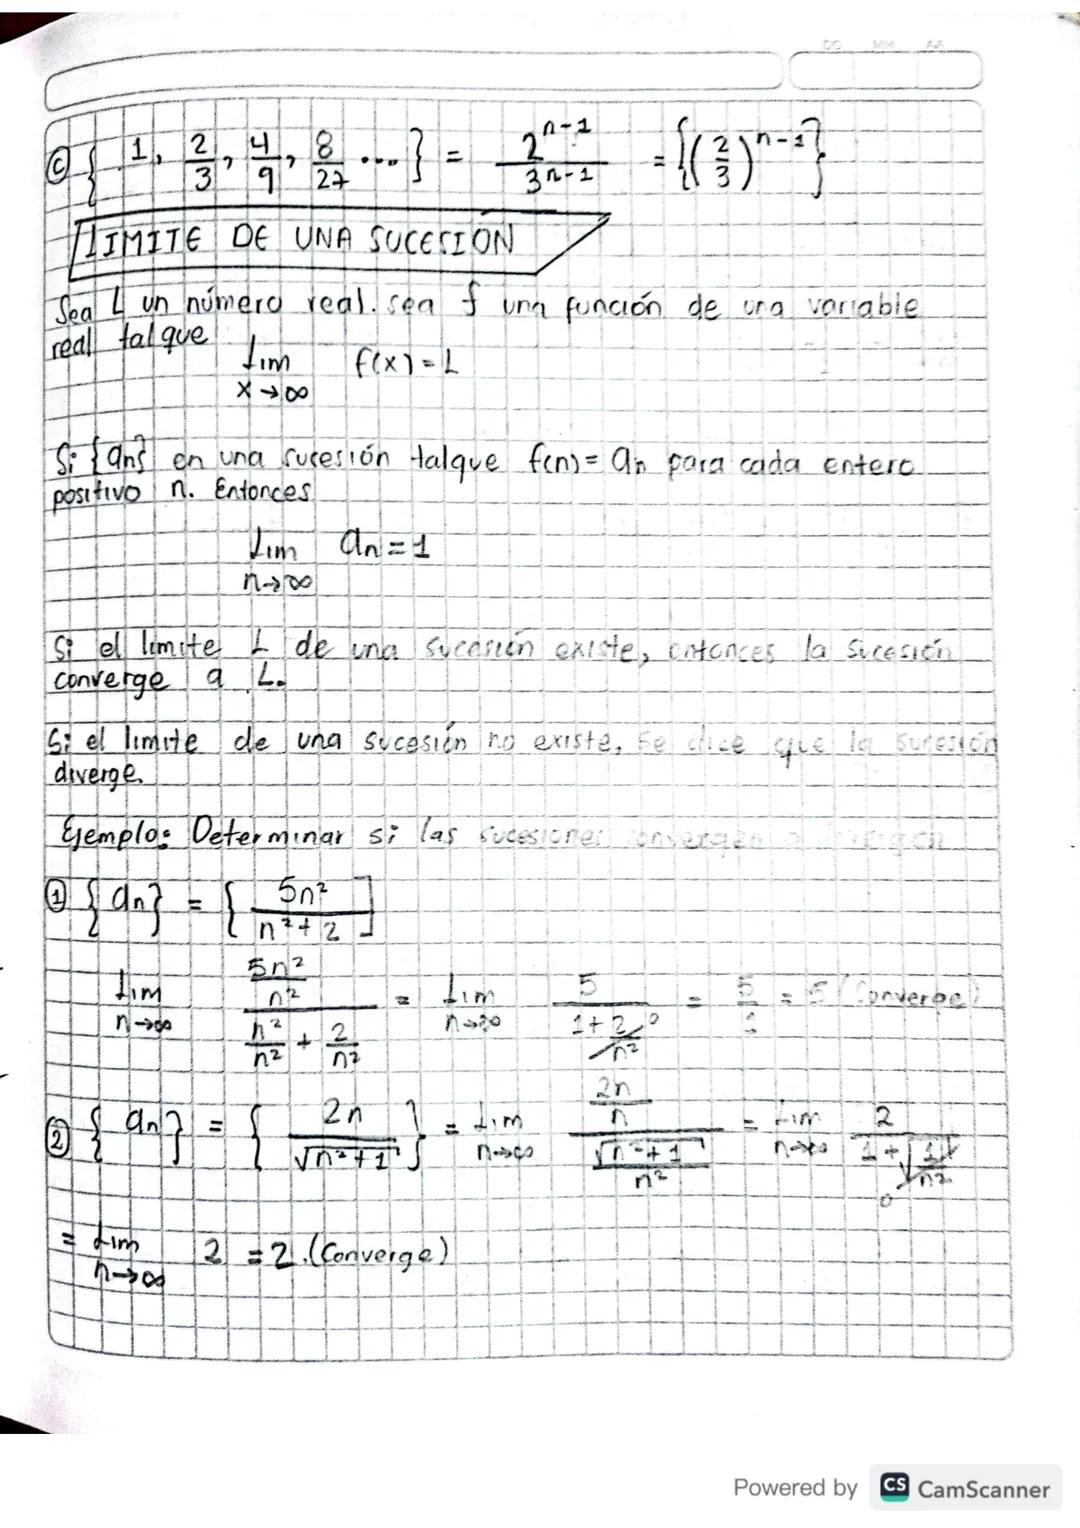 DD MM AA
Ⓒ { 1, 2/3, 4/9, 8/27 .... } = 2^(n-1) / 3^(n-1) = {(2/3)^(n-1)}
LIMITE DE UNA SUCESION
Sea L un número real. sea f una función de una variable
real talque
Lim f(x) = L
x→∞
Si {an} en una sucesión talque f(n) = an para cada entero
positivo n. Entonces
Lim an = 1
n→∞
Si el limite L de una sucesión existe, entonces la sucesión
converge a L.
Si el limite de una sucesión no existe, se dice que la sucesión
diverge.
Ejemplo: Determinar si las sucesiones convergen o
① {an} = { 5n² / n²+2 ]
Lim n→∞ (5n²/n²) / (n²/n² + 2/n²) = Lim n→∞ 5 / (1 + 2/n² 0) = 5/1 = 5 (Converge)
② {an} = { 2n / √n²+1 } = Lim n→∞ (2n/n) / (√n²+1 / n²) = Lim n→∞ 2 / (1 + √1/n² 0)
= Lim n→∞ 2 = 2. (Converge)
Powered by CS CamScanner